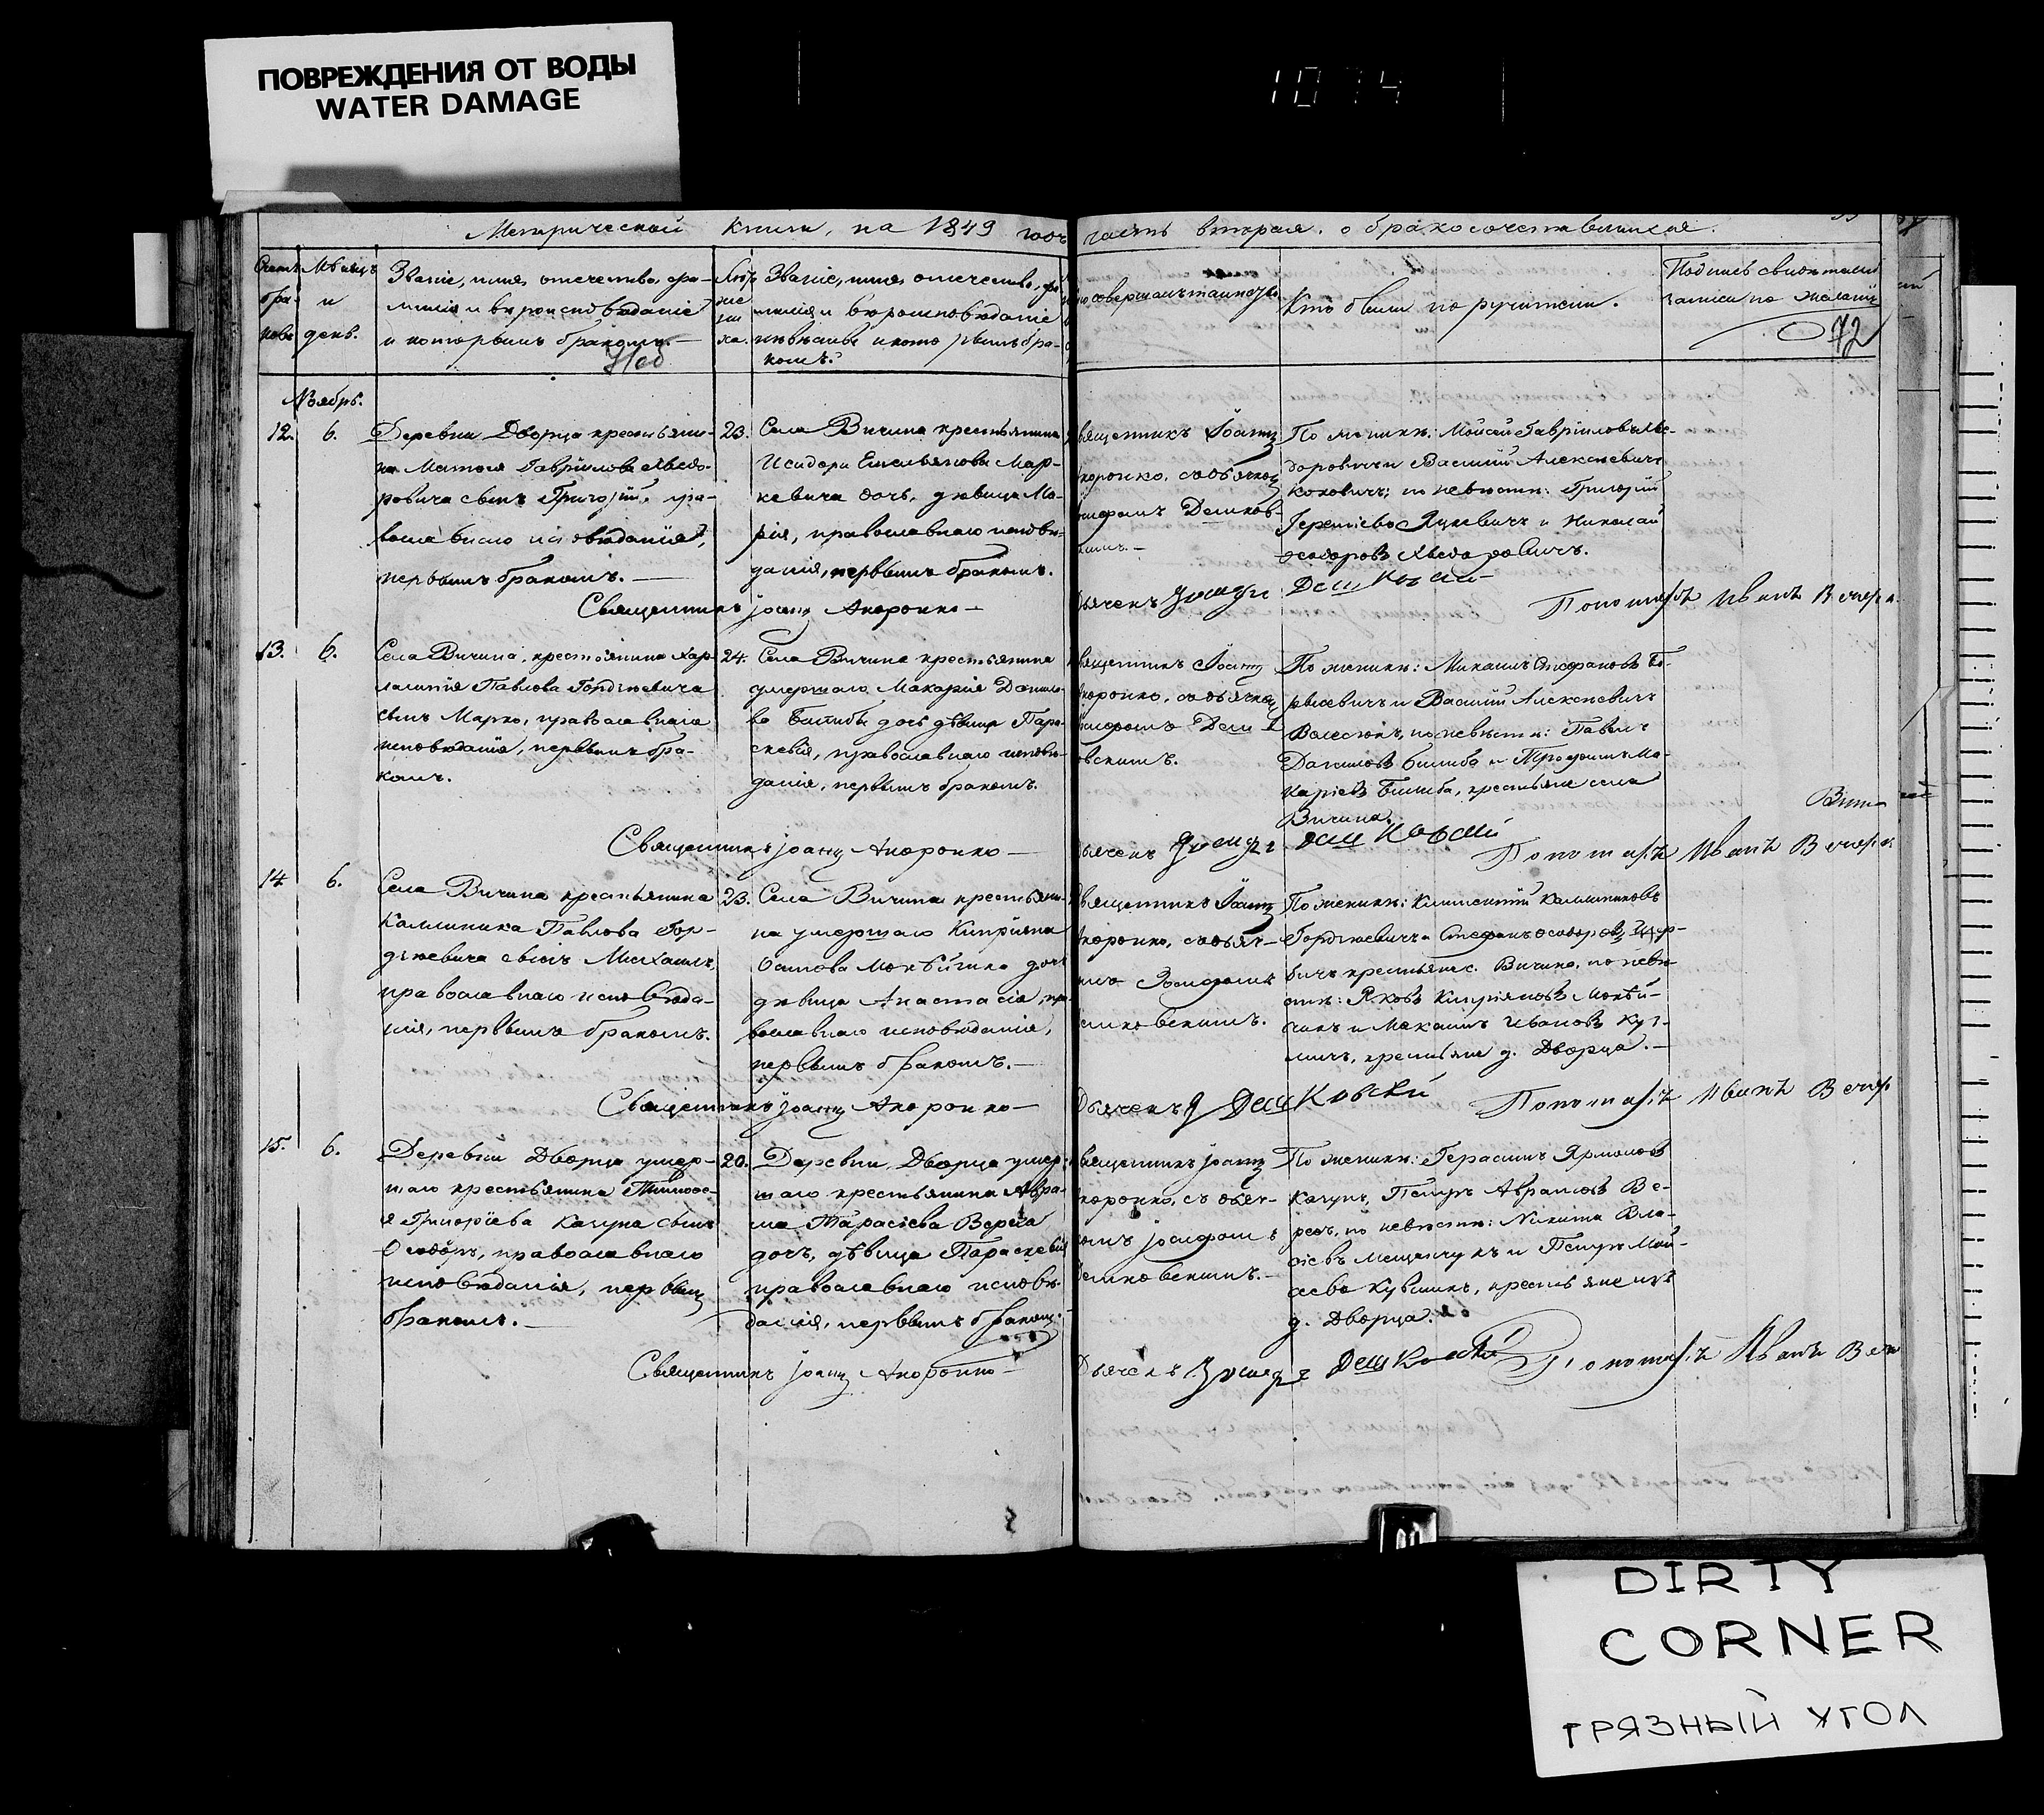 ПОВРЕЖДЕНИЯ ОТ ВОДЫ
WATER DAMAGE
1074
Метрической книги, на 1849 годъ часть вторая, о бракосочетавшихся.
Счетъ браковъ
Мѣсяцъ
и
день.
Званіе, имя, отечество, фа-
милія и вѣроисповѣданіе
и которымъ бракомъ.
Званіе, имя, отечество, фа
милія и вѣроисповѣданіе
невѣсты и которымъ бра-
комъ.
совершалъ таинство
Кто были поручители.
Подпись свидѣтелей
записи по желанію
72
Ноябрь.
12. 6.
Деревни Дворца крестьяни-
на Матѳея Гавріилова Хведо-
ровича сынъ Григорій, пра-
вославнаго исповѣданія,
первымъ бракомъ.
23.
Села Вичина крестьянина
Исидора Емельянова Мар-
кевича дочь, дѣвица Ма-
рія, православнаго исповѣ-
данія, первымъ бракомъ.
вященникъ Іоаннъ
коронко, съ дьячкомъ
осифомъ Дешков-
скимъ.
По женихѣ: Моисей Гавріиловъ Хве-
доровичъ и Василій Алексѣевичъ
по невѣстѣ: Григорій
Яцкевичъ и Николай
Ѳеодоровъ Хведоровичъ.
Священникъ Іоаннъ Акоронко
Дьячекъ Іосифъ Дешковскій
Пономарь Иванъ Вечер
13. 6.
Села Вичина, крестьянина Хар-
лампія Павлова Гордіевича
сынъ Марко, православнаго
исповѣданія, первымъ бра-
комъ.
24.
Села Вичина крестьянина
умершаго Макарія Данило-
ва Билиба дочь дѣвица Пара-
скевія, православнаго исповѣ-
данія, первымъ бракомъ.
вященникъ Іоаннъ
коронко, съ дьячкомъ
осифомъ Дешк-
овскимъ.
По женихѣ: Михаилъ Стефановъ Бо-
рисевичъ и Василій Алексѣевичъ
по невѣстѣ: Павелъ
Даниловъ Билиба и Трофимъ Ма-
каріевъ Билиба, крестьяне села
Вичина.
Священникъ Іоаннъ Акоронко
Дьячекъ Іосифъ Дешковскій
Пономарь Иванъ Вечер
14. 6.
Села Вичина крестьянина
Калинника Павлова Гор-
дѣевича сынъ Михаилъ,
православнаго исповѣда-
нія, первымъ бракомъ.
23.
Села Вичина крестьяни-
на умершаго Кипріяна
дочь
дѣвица Анастасія, пра-
вославнаго исповѣданія,
первымъ бракомъ.
вященникъ Іоаннъ
коронко, съ дьяч-
комъ Іосифомъ
Дешковскимъ.
По женихѣ: Климентій Калинниковъ
Гордіевичъ и Стефанъ Ѳеодоровъ
крестьяне с. Вичина, по невѣ-
стѣ: Яковъ Кипріяновъ
и Максимъ Ивановъ Куз-
мичъ, крестьяне д. Дворца.
Священникъ Іоаннъ Акоронко
Дьячекъ І Дешковскій
Пономарь Иванъ Вечер
15. 6.
Деревни Дворца умер-
шаго крестьянина Тимоѳе-
я Григоріева Качуна сынъ
Ѳеодоръ, православнаго
исповѣданія, первымъ
бракомъ.
20.
Деревни Дворца умер-
шаго крестьянина Авра-
ма Тарасіева Вереса
дочь, дѣвица Параскевія
православнаго исповѣ-
данія, первымъ бракомъ.
вященникъ Іоаннъ
коронко, съ дьяч-
комъ Іосифомъ
Дешковскимъ.
По женихѣ: Герасимъ Ярмоловъ
Качунъ, Петръ Аврамовъ Ве-
ресъ, по невѣстѣ: Никита Вла-
сіевъ Мещанчукъ и Петръ Мои-
сеевъ Кувшинъ, крестьяне изъ
д. Дворца.
Священникъ Іоаннъ Акоронко
Дьячекъ Іосифъ Дешковскій
Пономарь Иванъ Веч
DIRTY
CORNER
ГРЯЗНЫЙ УГОЛ